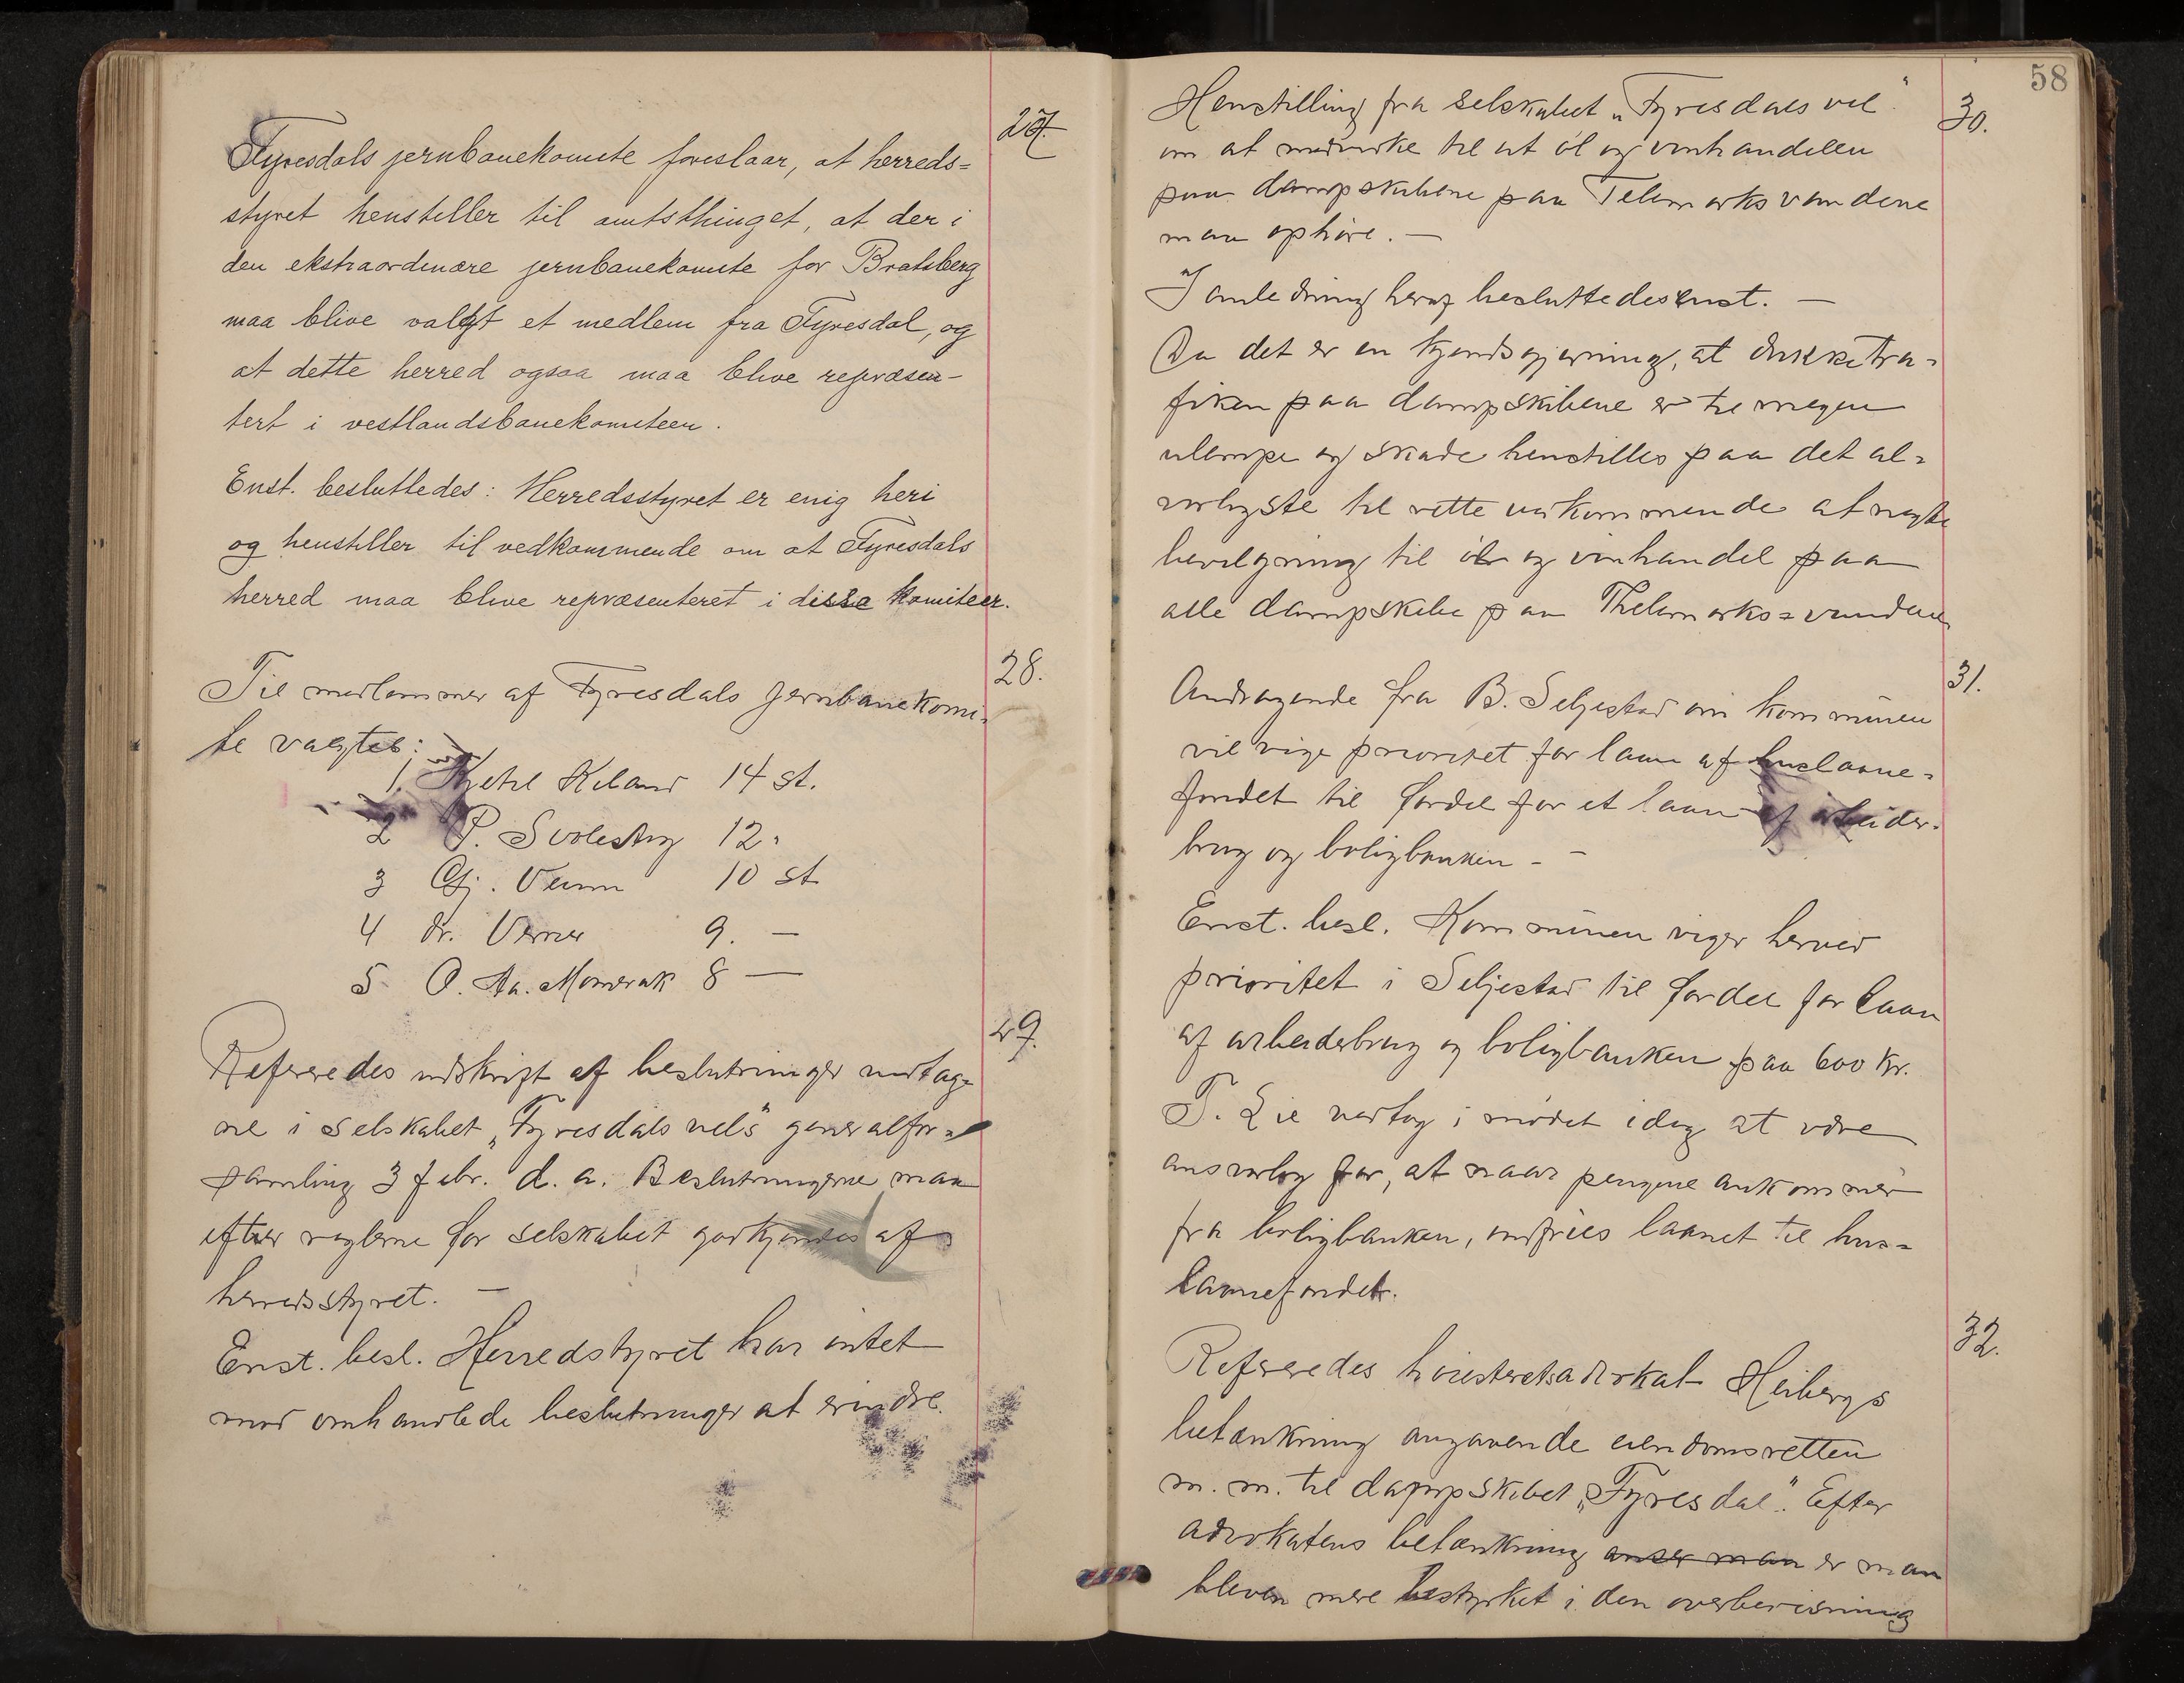 27.
Fyresdals jernbanekomite foreslaar, at herreds=
styret henstiller til amtsthinget, at der i
den ekstraordinære jernbanekomite for Bratsberg
maa blive valgt et medlem fra Fyresdal, og
at dette herred ogsaa maa blive repræsen-
tert i vestlandsbanekomiteen.
Enst. besluttedes: Herredsstyret er enig heri
og henstiller til vedkommende om at Fyresdals
herred maa blive repræsenteret i disse komiteer.
28.
Til medlemmer af Fyresdals jernbanekomi=
te valgtes:
1. Kjetil Kiland 14 st.
2 P. Svolestog 12 "
3 Gj. Veum 10 st
4 dr. Verner 9. —
5. O. Aa. Momrak 8 —
29.
Refereredes udskrift af beslutninger vedtag=
ne i selskabet „Fyresdals vel's" generalfor=
samling 3 febr. d. a. Beslutningerne maa
efter reglerne for selskabet godkjendes af
herredsstyret. —
Enst. besl. Herredstyret har intet
mod omhandlede beslutninger at erindre.
58
30.
Henstilling fra selskabet „Fyresdals vel"
om at medvirke til at øl og vinhandelen
paa dampskibene paa Telemarksvandene
maa ophøre. —
I anledning heraf besluttedes enst. —
Da det er en kjendsgjerning, at drikketra=
fiken paa dampskibene er til megen
ulempe og skade henstilles paa det al=
vorligste til rette vedkommende at negte
bevilgning til øl og vinhandel paa
alle dampskibe paa Thelemarks=vandene
31.
Andragende fra B. Seljestad om kommunen
vil vige prioritet for laan af huslaane=
fondet til fordel for et laan af arbeider=
brug og boligbanken - -
Enst. besl. Kommunen viger herved
prioritet i Seljestad til fordel for laan
af arbeiderbrug og boligbanken paa 600 kr.
T. Lie vedtog i mødet idag at være
ansvarlig for, at naar pengene ankommer
fra boligbanken, indfries laanet til hus=
laanefondet.
32.
Refereredes høiesteretsadvokat Heibergs
betænkning angaaende eiendomsretten
m. m. til dampskibet „Fyresdal". Efter
advokatens betænkning anser man er man
bleven mere bestyrket i den overbevisning